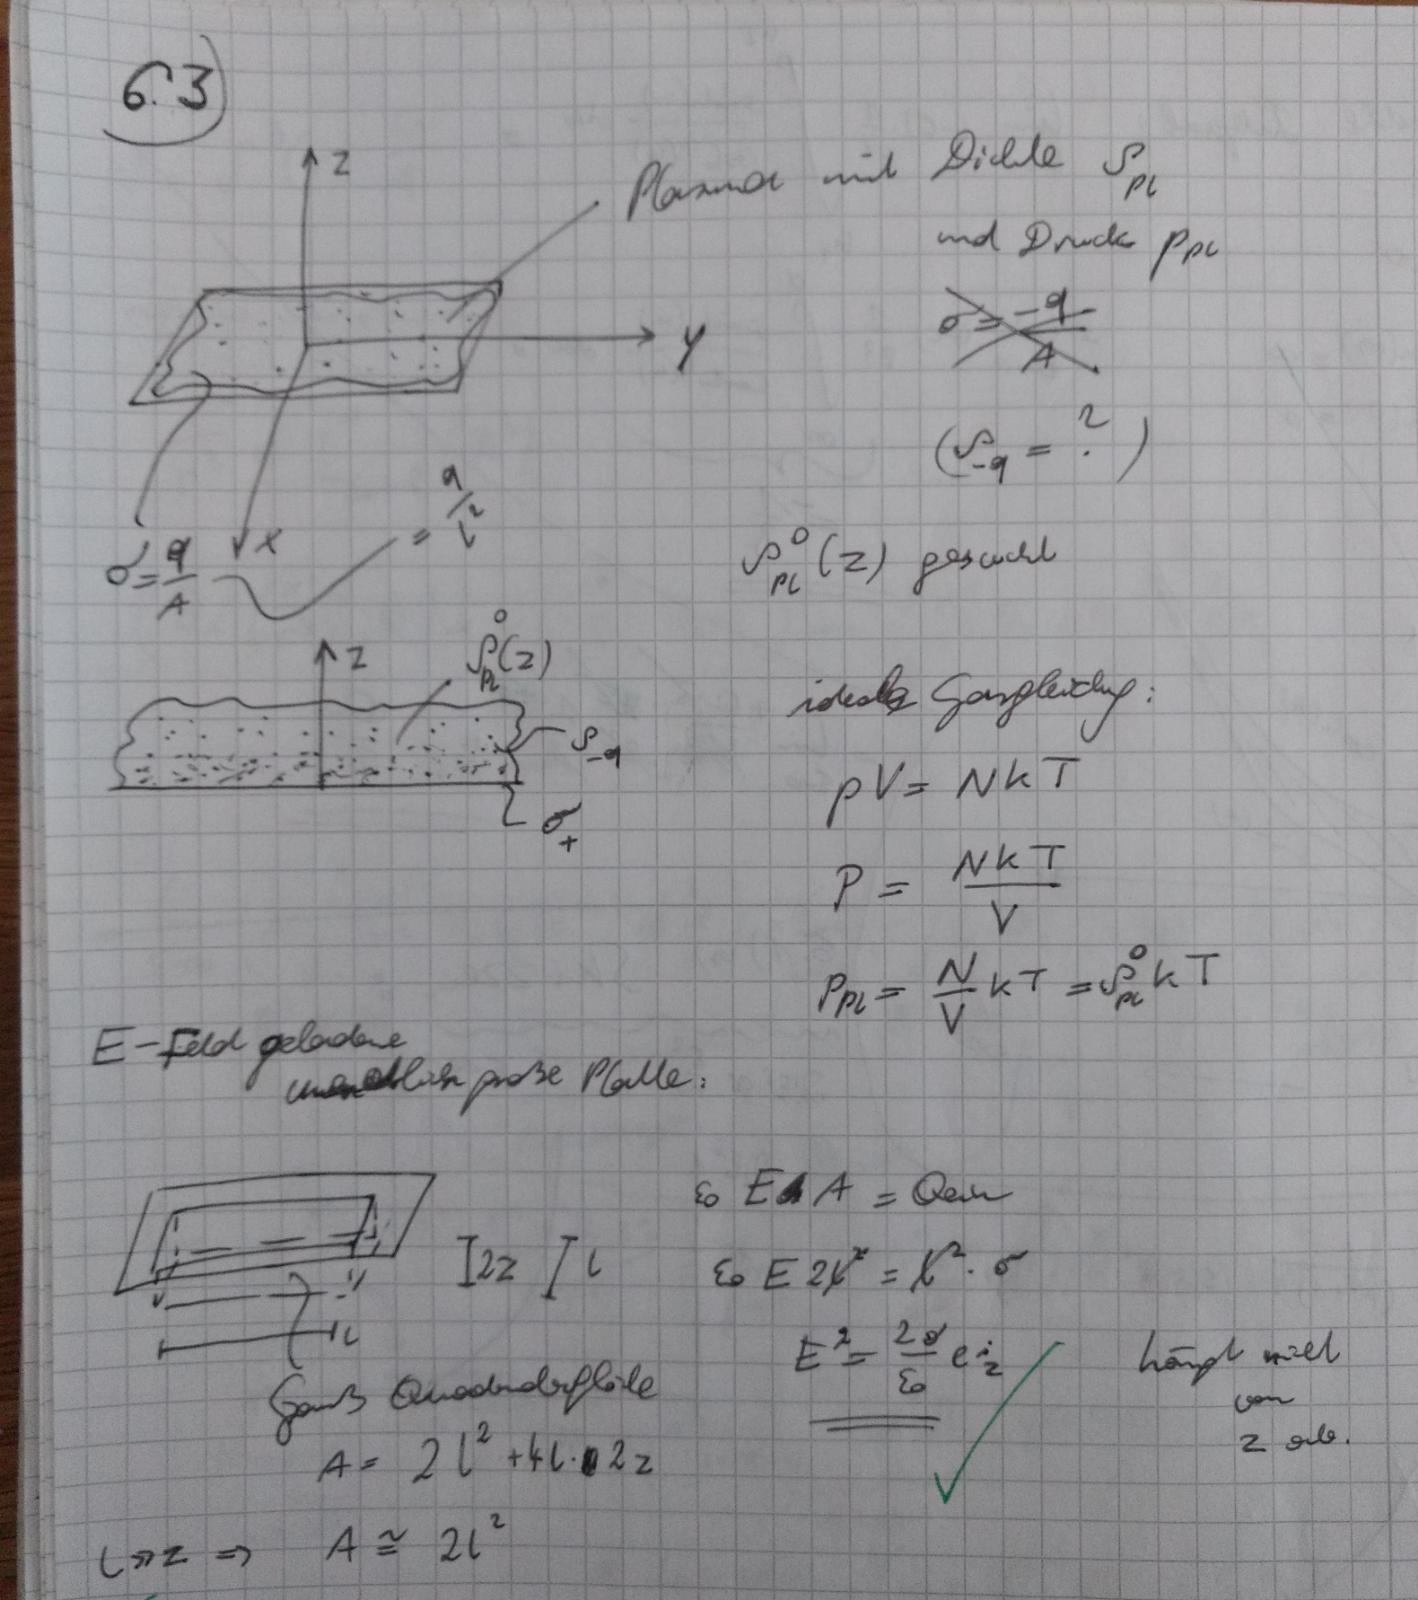 6.3
z
Plasma mit Dichte ρ_pl
und Druck p_pl
y
σ = -q/A
(ρ_-q = ?)
x
σ = q/A = q/l²
ρ⁰_pl(z) gesucht
z
ρ⁰_pl(z)
ρ_-q
σ_+
ideale Gasgleichung:
pV = NkT
P = NkT/V
P_pl = N/V kT = ρ⁰_pl kT
E-Feld geladene
unendlich große Platte:
2z l
l
Gauß Quaderoberfläche
A = 2l² + 4l · 2z
l >> z ⇒ A ≅ 2l²
ε₀ E A = Qein
ε₀ E 2l² = l² · σ
hängt nicht
von
z ab.